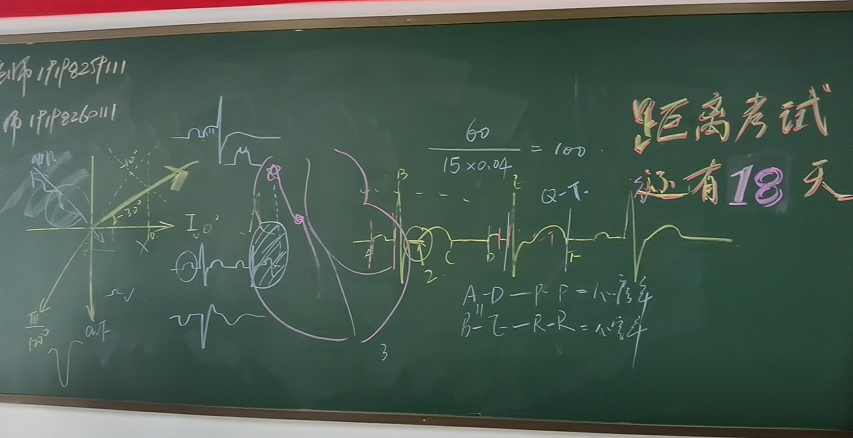 师 19198259111
师 19198260111
60
15×0.04
= 100
距离考试
还有18天
Q-T.
B
E
I 0°
-30°
A
2
C
D
F
A-D—P-P=心房率
B-E—R-R=心室率
III
120°
avF
3